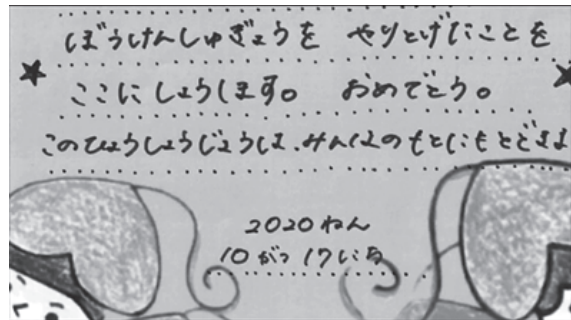 ぼうけんしゅぎょうを やりとげたことを
ここに しょうします。 おめでとう。
このひょうしょうじょうは、みんなのもとにもとどきま
2020ねん
10がつ 17にち